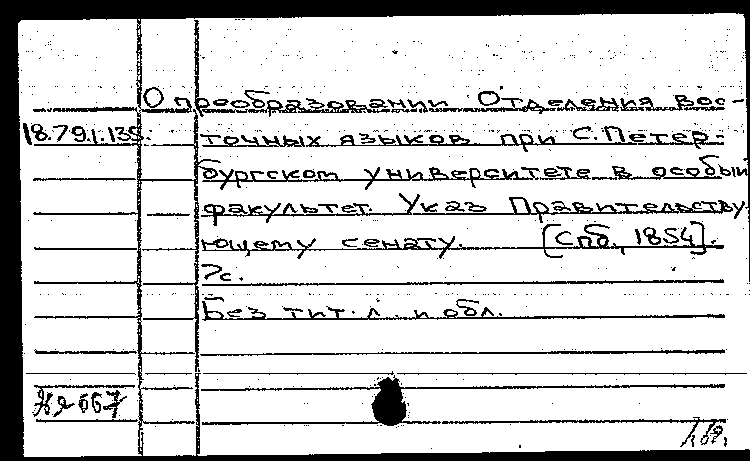 О преобразовании Отделения вос-
18.79.1.135. точных языков при С.Петер-
бургском университете в особый
факультет. Указ Правительству-
ющему сенату. [Спб., 1854].
7с.
Без тит. л. и обл.